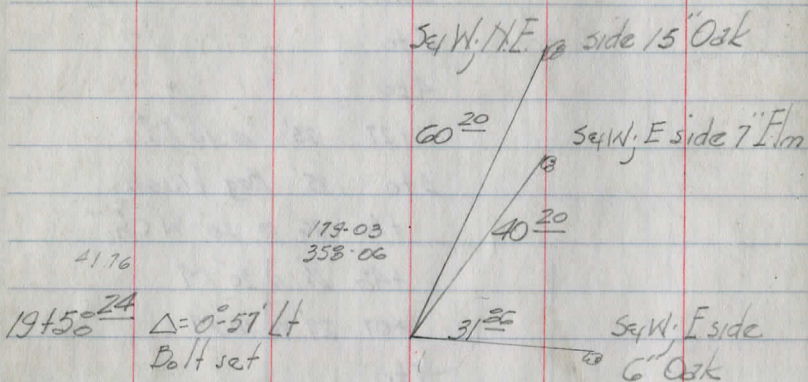 S&W; N.E. side 15" Oak
60 20
S&W; E side 7" Elm
40 20
179-03
358-06
41.76
19+50 24 Δ= 0°-57' Lt
Bolt set
31 86
S&W; E side
6" Oak